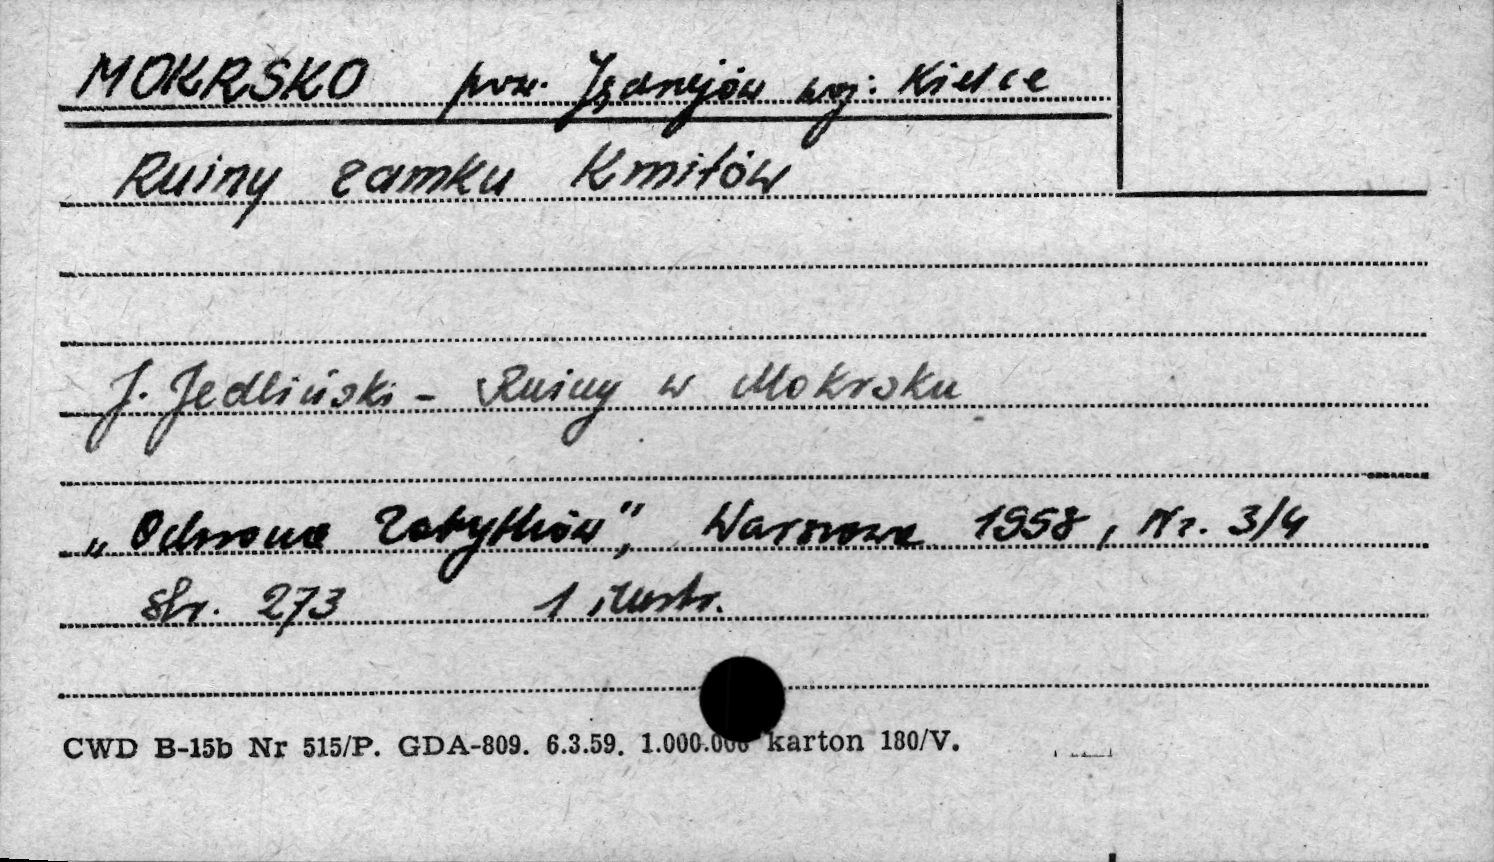 MOKRSKO pow. Jędrzejów woj. Kielce
Ruiny zamku Kmitów
J. Jedliński - Ruiny w Mokrsku
„Ochrona Zabytków”, Warszawa 1958, Nr. 3/4
str. 273 1 ilustr.
CWD B-15b Nr 515/P. GDA-809. 6.3.59. 1.000.000 karton 180/V.